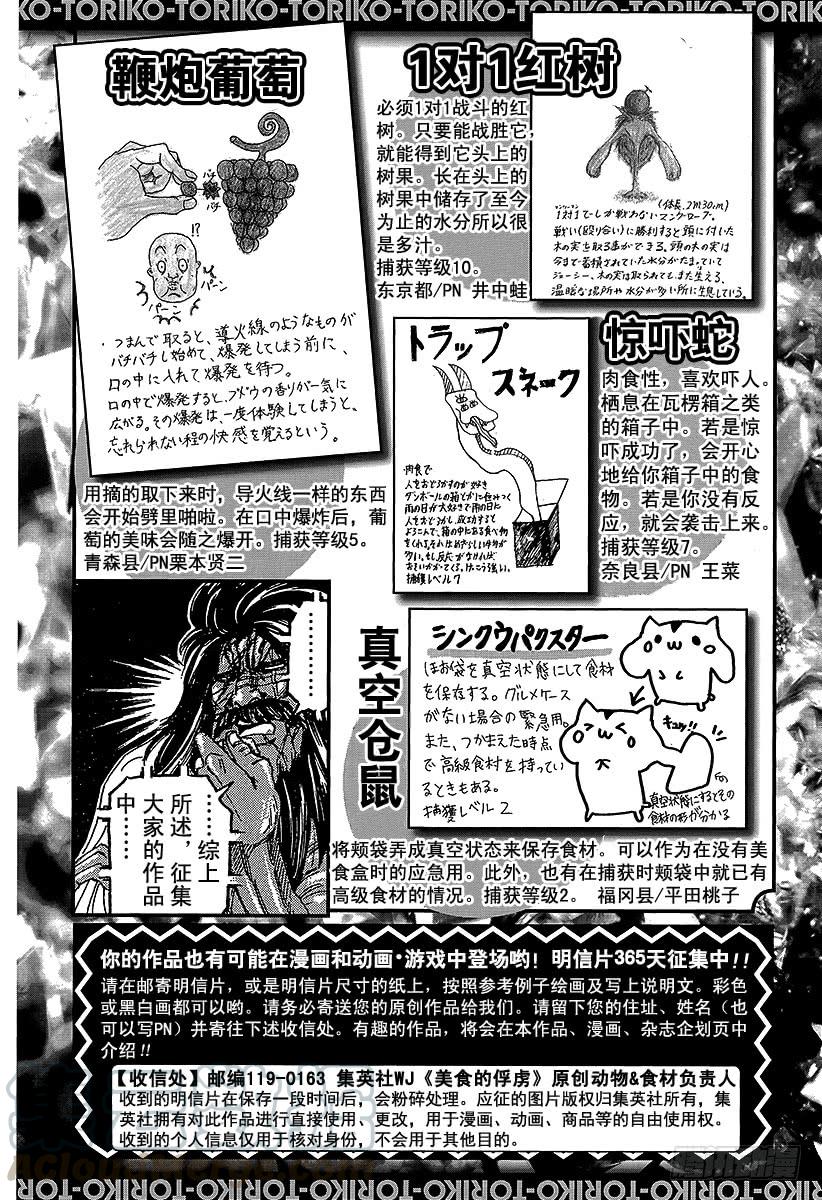 KO-TORIKO-TORIKO-TORIKO-TORIKO-TORIKO-TORIKO-TORIKO-TOR
鞭炮葡萄
パチパチ
!?
パーン
パーン
・つまんで取ると、導火線のようなものが
パチパチし始めて、爆発してしまう前に、
口の中に入れて爆発を待つ。
口の中で爆発すると、ブドウの香りが一気に
広がる。その爆発は、一度体験してしまうと、
忘れられない程の快感を覚えるという。
用摘的取下来时，导火线一样的东西
会开始劈里啪啦。在口中爆炸后，葡
萄的美味会随之爆开。捕获等级5。
青森县/PN栗本贤二
1对1红树
必须1对1战斗的红
树。只要能战胜它，
就能得到它头上的
树果。长在头上的
树果中储存了至今
为止的水分所以很
是多汁。
捕获等级10。
东京都/PN 井中蛙
(体長、2m30cm)
1対1でしか戦わないマングローブ。
戦い(殴り合い)に勝利すると頭に付いた
木の実を取る事ができる。頭の木の実は
今まで蓄積されていた水分がたまっていて
ジューシー、木の実は取られても、また生える、
温暖な場所や水分が多い所に生息している。
惊吓蛇
肉食性，喜欢吓人。
栖息在瓦楞箱之类
的箱子中。若是惊
吓成功了，会开心
地给你箱子中的食
物。若是你没有反
应，就会袭击上来。
捕获等级7。
奈良县/PN 王菜
トラップ
スネーク
肉食で
人をおどろかすのが好き
ダンボールの箱とかに住みつく
雨の日が大好きで雨の日に
人をおどろかし、成功すると
よろこんで、箱の中にある食べ物
をくれる。
捕獲レベル7
真空仓鼠
シンクウパクスター
ほお袋を真空状態にして食材
を保存する。グルメケース
がない場合の緊急用。
また、つかまえた時点
で高級食材を持ってい
るときもある。
捕獲レベル2
キュッ!!
真空状態にするとその
食材の形が分かる
将颊袋弄成真空状态来保存食材。可以作为在没有美
食盒时的应急用。此外，也有在捕获时颊袋中就已有
高级食材的情况。捕获等级2。 福冈县/平田桃子
………
……综上
所述，征集
大家的作品
中……
你的作品也有可能在漫画和动画·游戏中登场哟！明信片365天征集中!!
请在邮寄明信片，或是明信片尺寸的纸上，按照参考例子绘画及写上说明文。彩色
或黑白画都可以哟。请务必寄送您的原创作品给我们。请留下您的住址、姓名（也
可以写PN）并寄往下述收信处。有趣的作品，将会在本作品、漫画、杂志企划页中
介绍!!
【收信处】邮编119-0163 集英社WJ《美食的俘虏》原创动物&食材负责人
收到的明信片在保存一段时间后，会粉碎处理。应征的图片版权归集英社所有，集
英社拥有对此作品进行直接使用、更改，用于漫画、动画、商品等的自由使用权。
收到的个人信息仅用于核对身份，不会用于其他目的。
KO-TORIKO-TORIKO-TORIKO-TORIKO-TORIKO-TORIKO-TORIKO-TOR